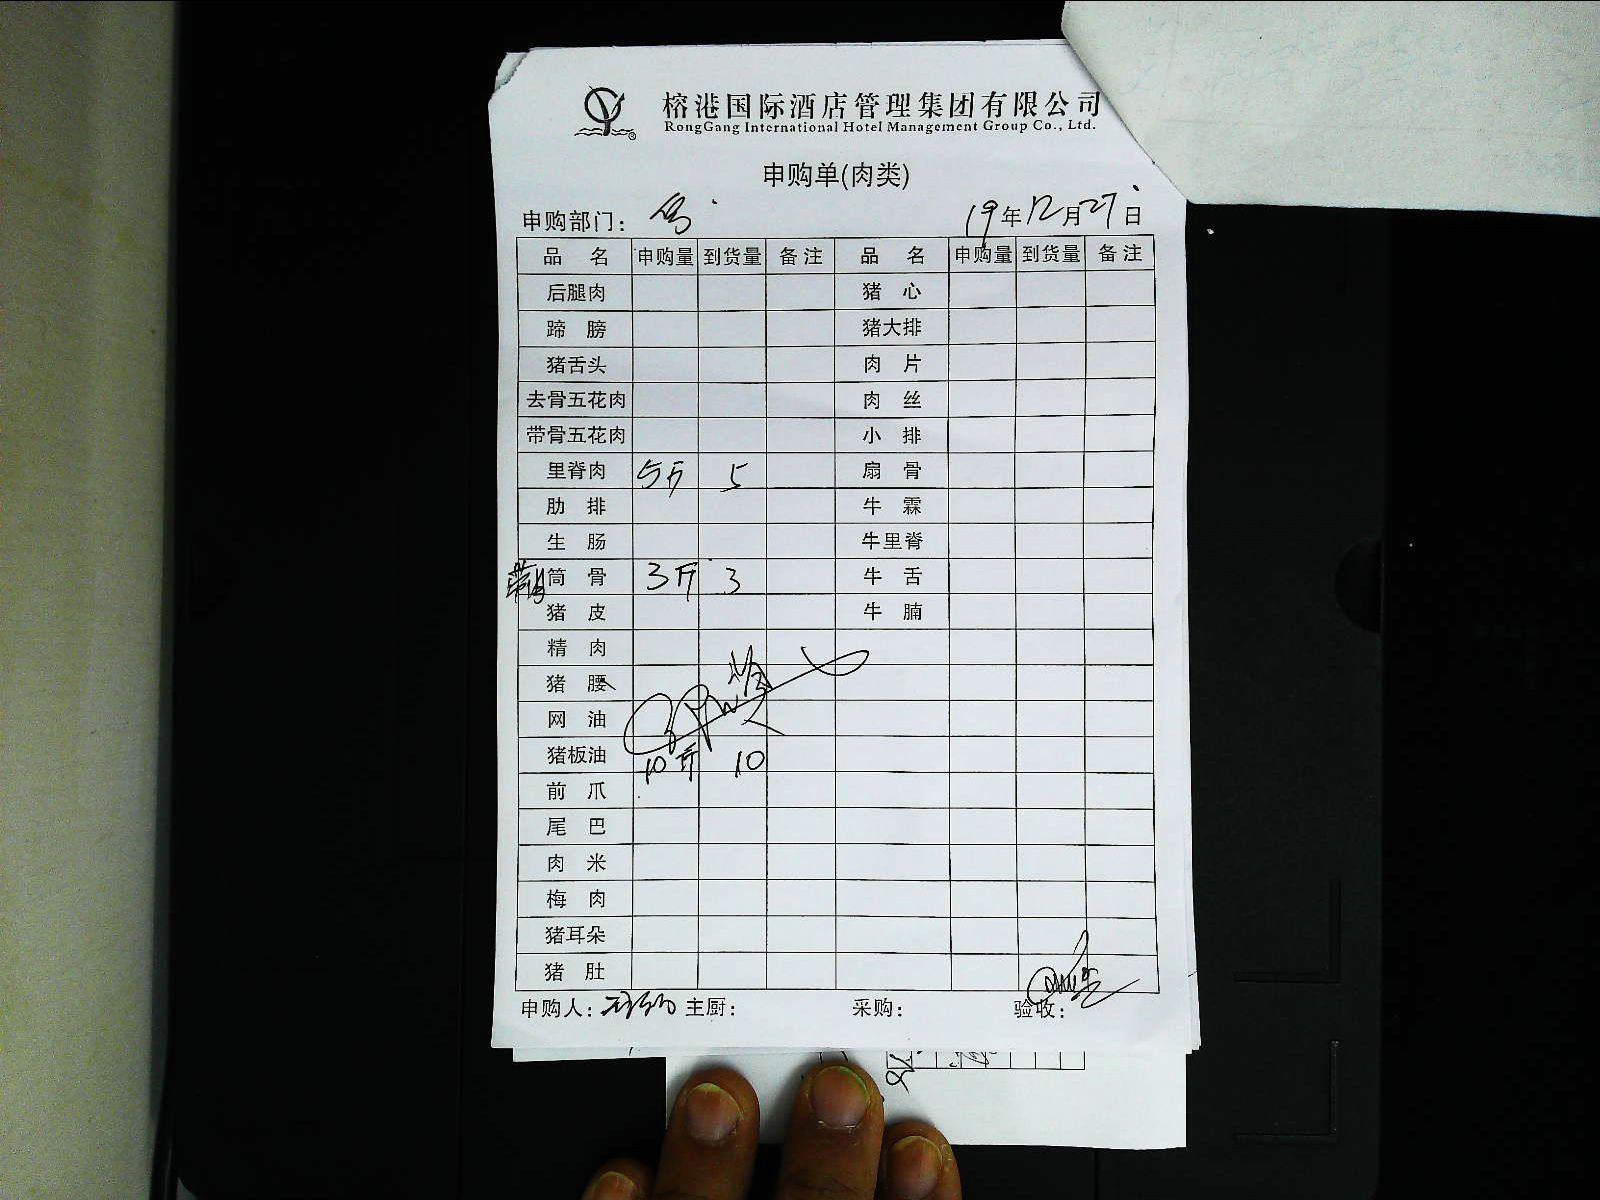 榕港国际酒店管理集团有限公司
RongGang International Hotel Management Group Co., Ltd.
申购单(肉类)
申购部门: 19年12月27日
品名 申购量 到货量 备注 品名 申购量 到货量 备注
后腿肉 猪心
蹄膀 猪大排
猪舌头 肉片
去骨五花肉 肉丝
带骨五花肉 小排
里脊肉 5斤 5 扇骨
肋排 牛霖
生肠 牛里脊
筒骨 3斤 3 牛舌
猪皮 牛腩
精肉
猪腰
网油
猪板油 10斤 10
前爪
尾巴
肉米
梅肉
猪耳朵
猪肚
申购人: 主厨: 采购: 验收: